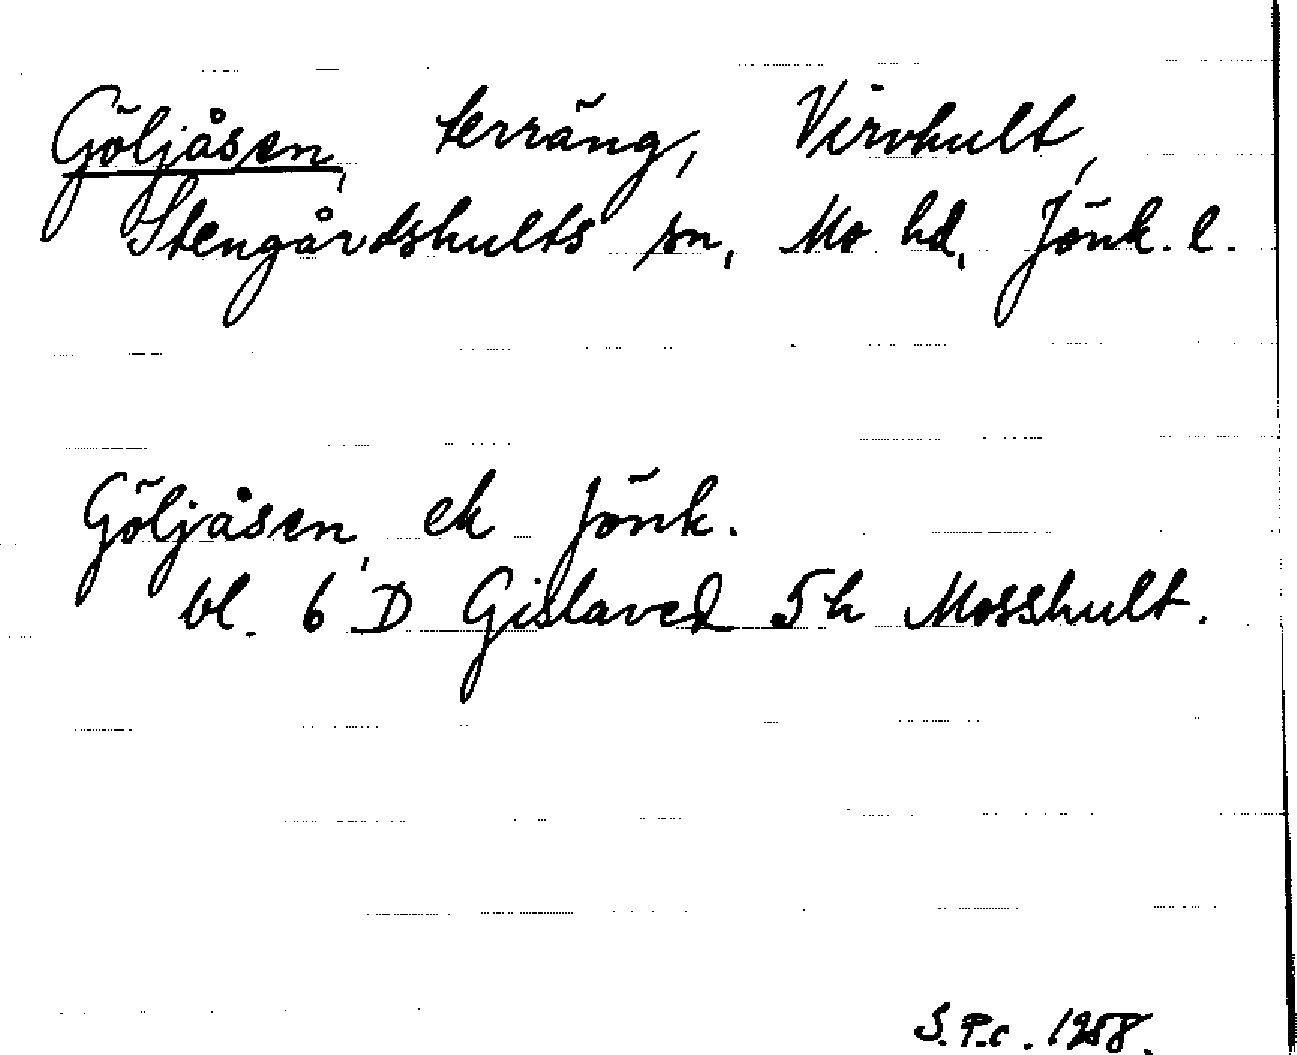 Göljåsen, terräng, Virvhult,
Stengårdshults sn, Mo hd, Jönk. l.
Göljåsen, ek Jönk.
bl. 6 D Gislaved 5h Mosshult.
S.P.c. 1958.